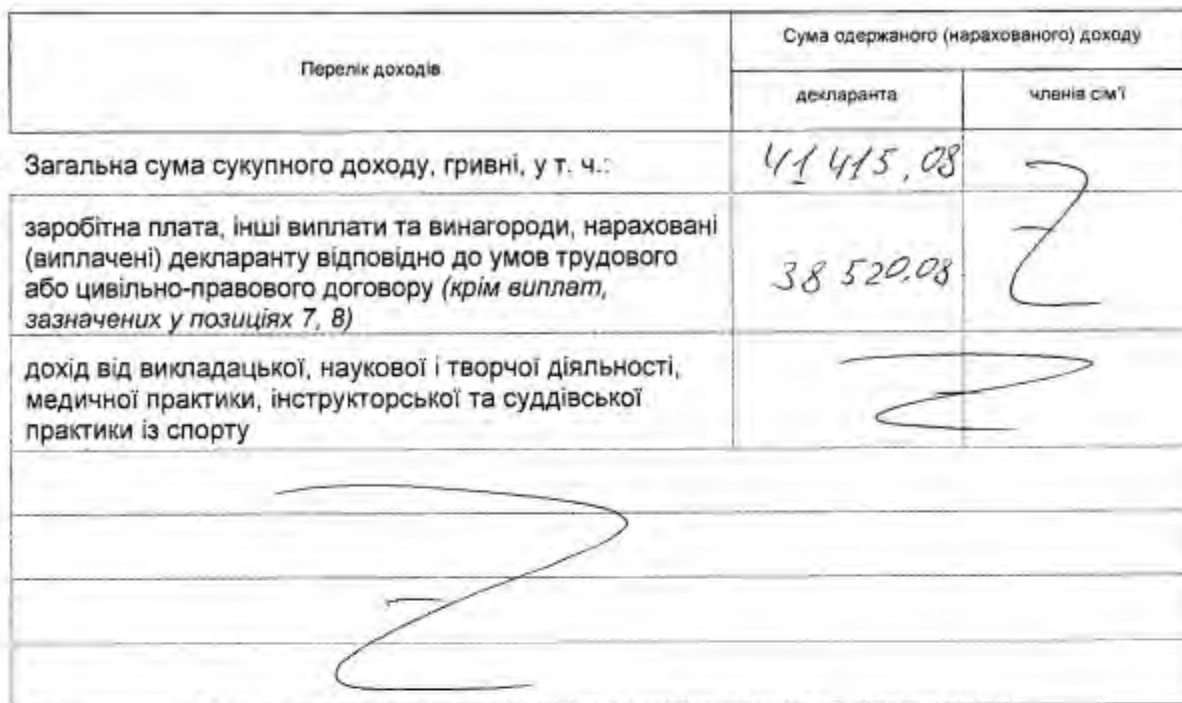 Перелік доходів
Сума одержаного (нарахованого) доходу
декларанта
членів сім'ї
Загальна сума сукупного доходу, гривні, у т. ч.:
41 415,08
заробітна плата, інші виплати та винагороди, нараховані
(виплачені) декларанту відповідно до умов трудового
або цивільно-правового договору (крім виплат,
зазначених у позиціях 7, 8)
38 520,08
дохід від викладацької, наукової і творчої діяльності,
медичної практики, інструкторської та суддівської
практики із спорту